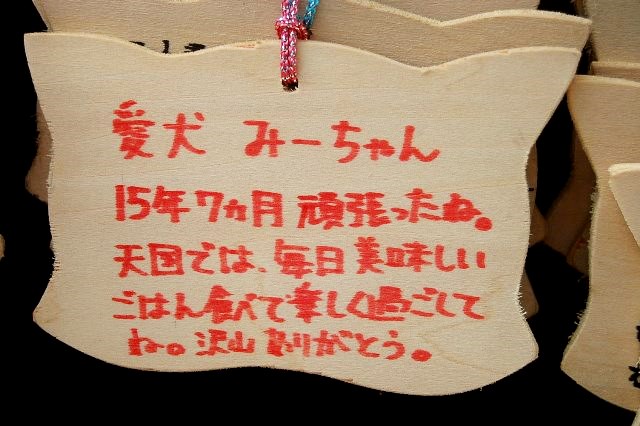 愛犬 みーちゃん
15年7ヵ月 頑張ったね。
天国では、毎日美味しい
ごはん食べて楽しく過ごして
ね。沢山ありがとう。